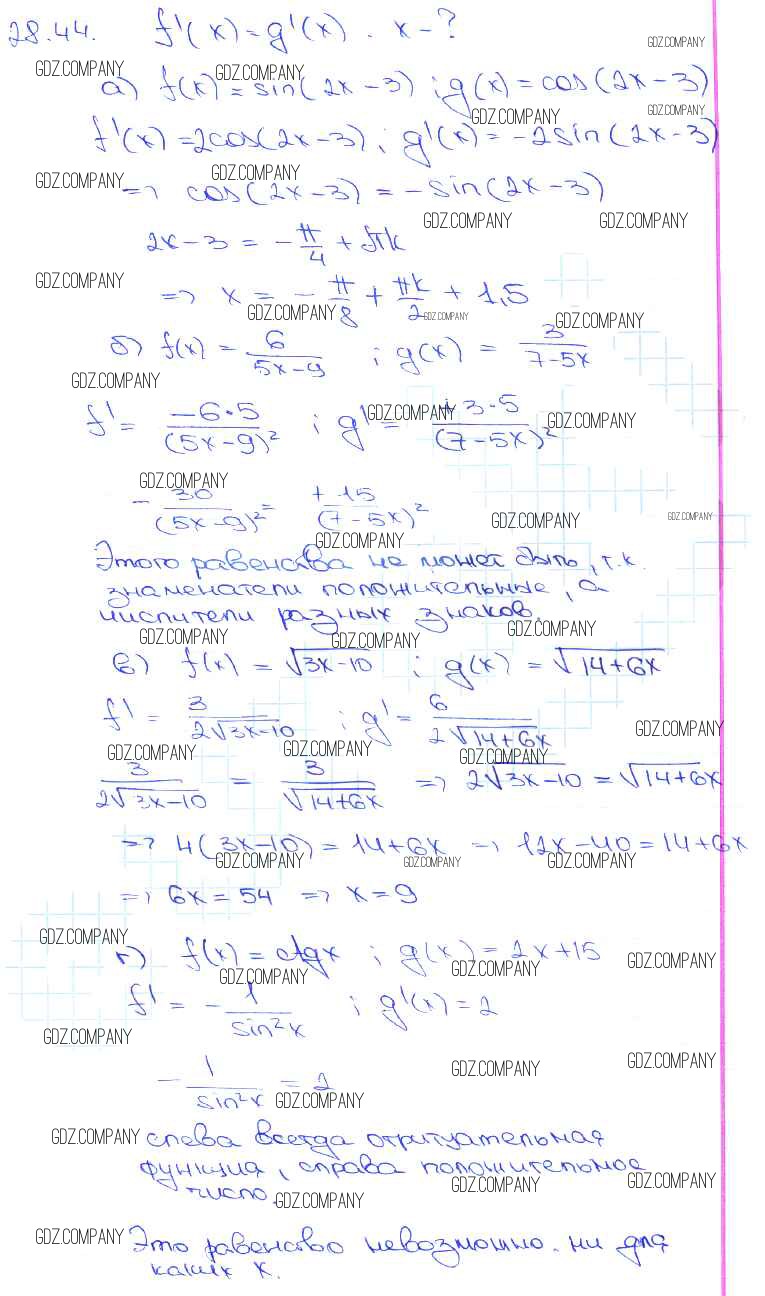 28.44. f'(x) = g'(x). x - ?
а) f(x) = sin(2x-3); g(x) = cos(2x-3)
f'(x) = 2cos(2x-3); g'(x) = -2sin(2x-3)
=> cos(2x-3) = -sin(2x-3)
2x-3 = -π/4 + πk
=> x = -π/8 + πk/2 + 1,5
б) f(x) = 6/(5x-9); g(x) = 3/(7-5x)
f' = -6·5/(5x-9)²; g' = +3·5/(7-5x)²
-30/(5x-9)² = +15/(7-5x)²
Этого равенства не может быть, т.к.
знаменатели положительные, а
числители разных знаков.
в) f(x) = √(3x-10); g(x) = √(14+6x)
f' = 3/(2√(3x-10)); g' = 6/(2√(14+6x))
3/(2√(3x-10)) = 3/√(14+6x) => 2√(3x-10) = √(14+6x)
=> 4(3x-10) = 14+6x => 12x-40 = 14+6x
=> 6x = 54 => x = 9
г) f(x) = ctgx; g(x) = 2x+15
f' = -1/sin²x; g'(x) = 2
-1/sin²x = 2
слева всегда отрицательная
функция, справа положительное
число.
Это равенство невозможно. ни для
каких x.
GDZ.COMPANY